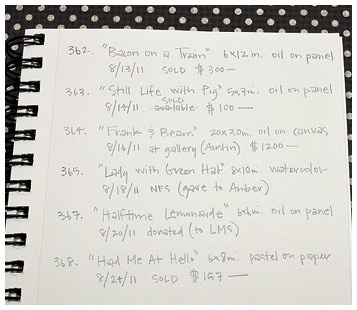 362. "Bacon on a Train" 6x12in. oil on panel
8/13/11 SOLD $300—
363. "Still Life with Pig" 5x7in. oil on panel
SOLD
8/14/11 available $100—
364. "Frank & Beans" 20x30in. oil on canvas
8/16/11 at gallery (Austin) $1200—
365. "Lady with Green Hat" 8x10in. watercolor
8/18/11 NFS (gave to Amber)
367. "Halftime Lemonade" 6x6in. oil on panel
8/20/11 donated (to LMS)
368. "Had Me At Hello" 6x8in. pastel on paper
8/24/11 SOLD $157—